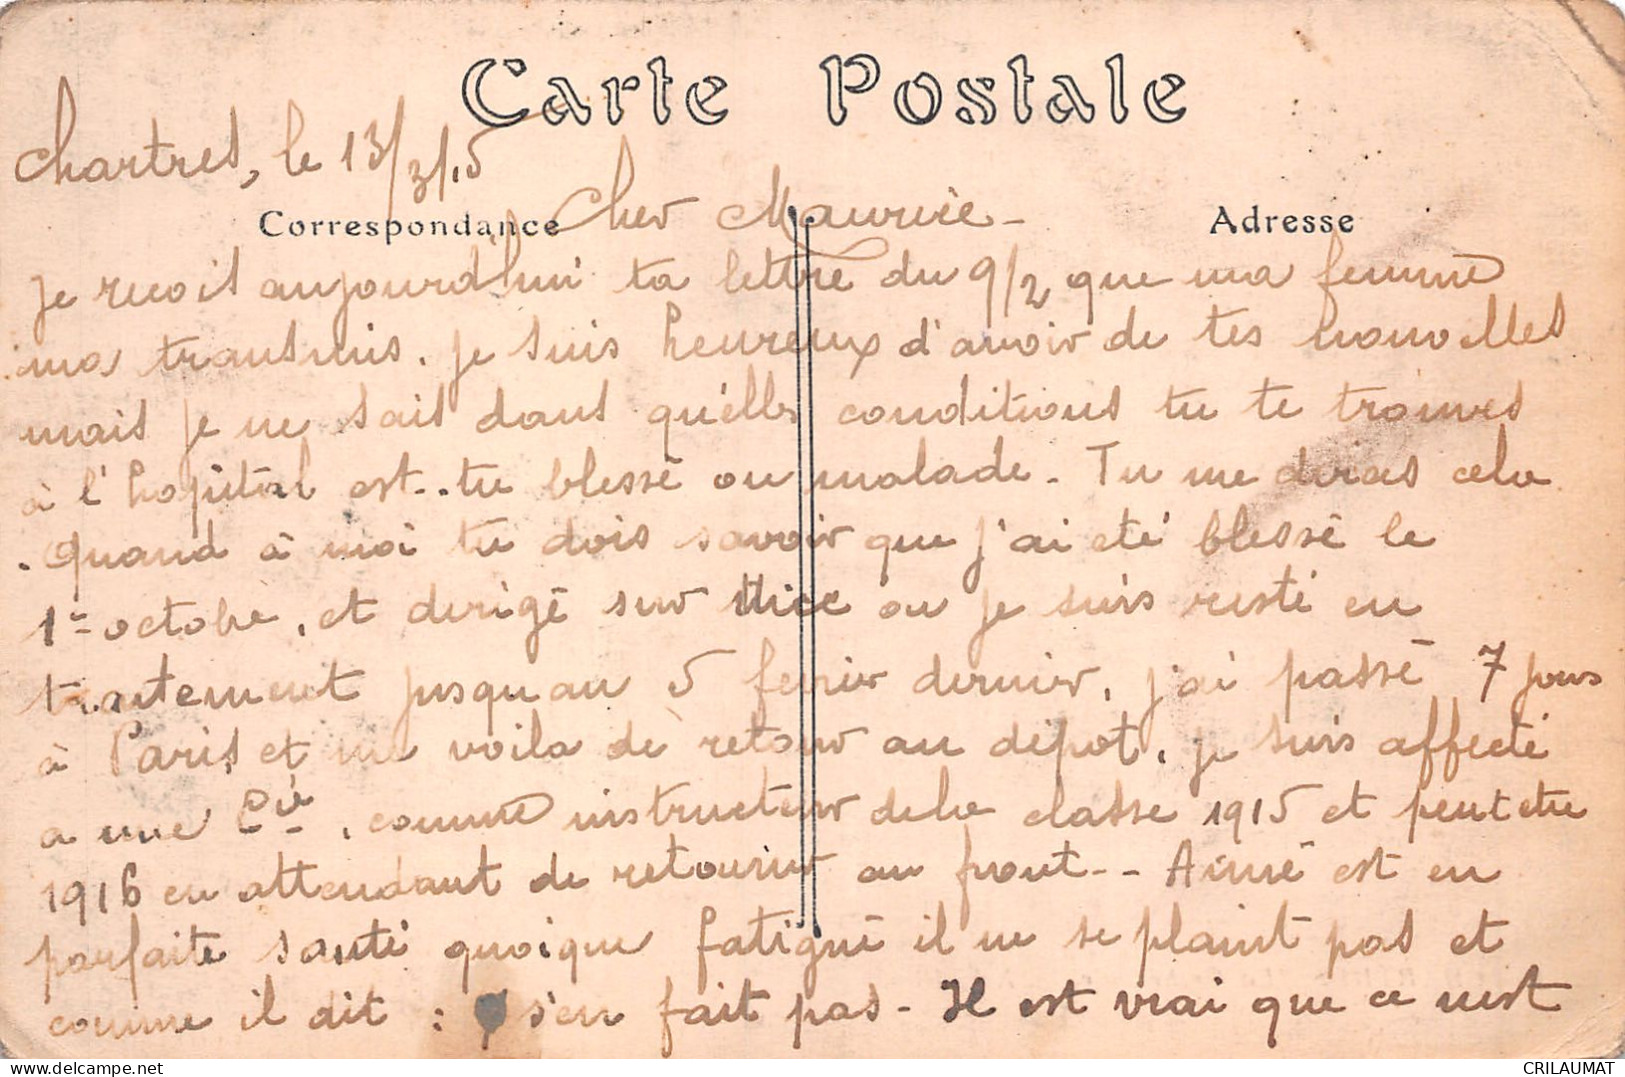 Carte Postale
Chartres, le 13/3/15
Correspondance
Cher Maurice -
Adresse
Je recois aujourd'hui ta lettre du 9/2 que ma femme
ma transmis. Je suis heureux d'avoir de tes nouvelles
mais je ne sais dans qu'elles conditions tu te trouves
à l'hopital est-tu blessé ou malade. Tu me diras cela
. Quand à moi tu dois savoir que j'ai été blessé le
1er octobre, et dirigé sur Nice ou je suis resté en
traitement jusquau 5 fevrier dernier, j'ai passé 7 jours
à Paris et me voila de retour au dépot, je suis affecté
a une Cie, comme instructeur dela classe 1915 et peut etre
1916 en attendant de retourner au front -- Aimé est en
parfaite santé quoique fatigué il ne se plaint pas et
comme il dit : s'en fait pas - Il est vrai que ce nest
www.delcampe.net
CRILAUMAT